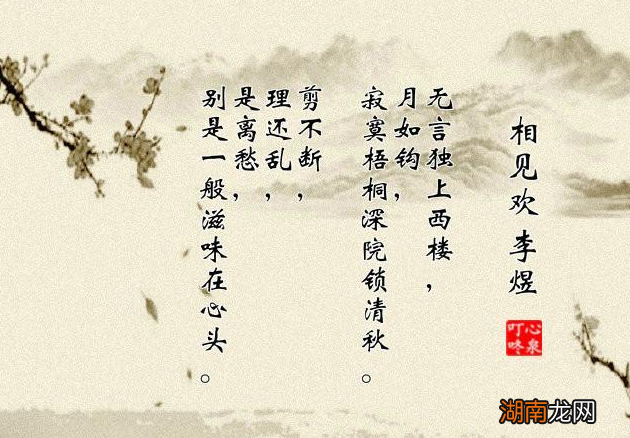 相见欢 李煜
无言独上西楼，
月如钩，
寂寞梧桐深院锁清秋。
剪不断，
理还乱，
是离愁，
别是一般滋味在心头。
心泉
叮咚
湖南龙网